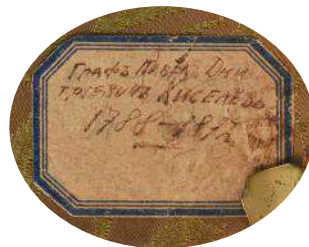 Графъ Павелъ Дми
тріевичъ Киселёвъ
1788–1872